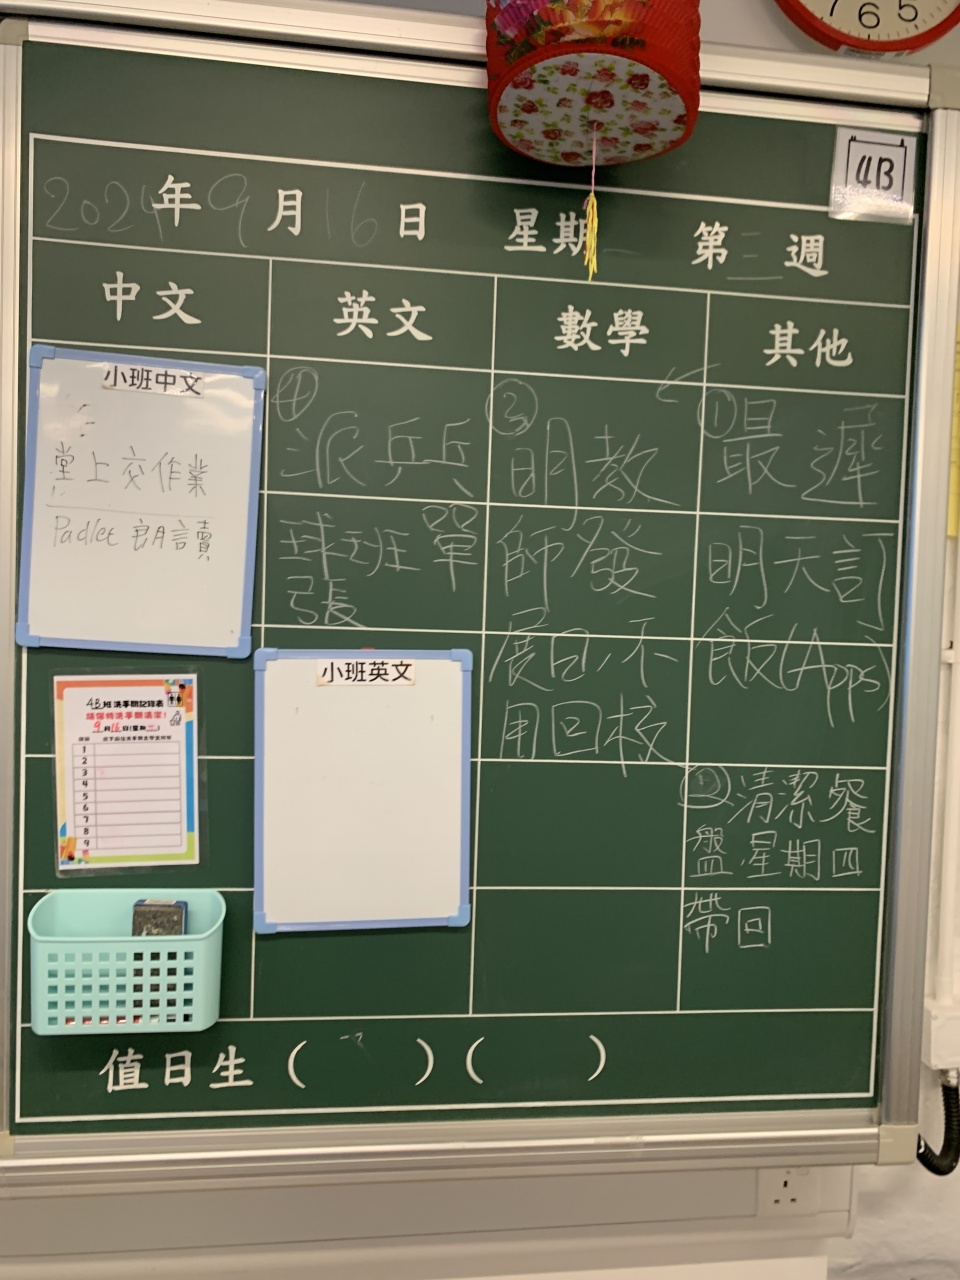 7 6 5
4B
2024年9月16日 星期一 第三週
中文 英文 數學 其他
小班中文
堂上交作業
Padlet 朗讀
④派乒乓
球班單
張
③明教
師發
展日,不
用回校
①最遲
明天訂
飯(Apps)
②清潔餐
盤星期四
帶回
小班英文
4B班洗手間記錄表
請保持洗手間清潔!
9月16日(星期一)
1
2
3
4
5
6
7
8
9
值日生( )( )